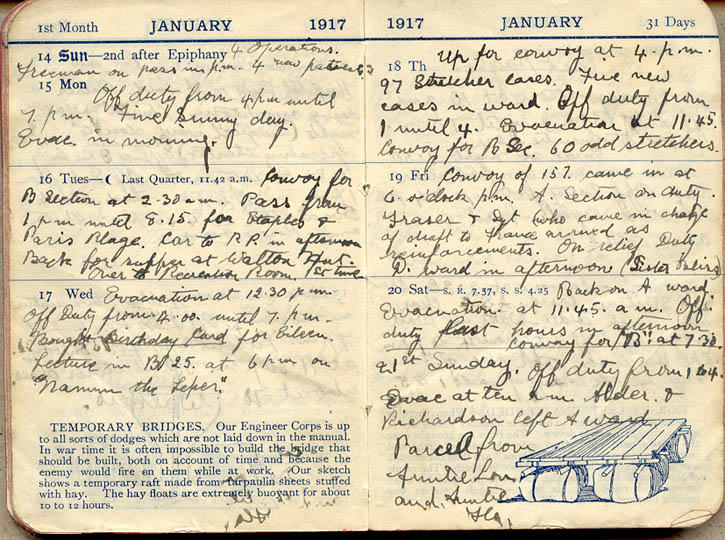 1st Month JANUARY 1917
14 Sun—2nd after Epiphany 4 Operations.
Freeman on pass in p.m. 4 new patients
15 Mon
Off duty from 4 p.m until
7 p.m. Fine Sunny day.
Evac. in morning.
16 Tues—☾ Last Quarter, 11.42 a.m. Convoy for
B Section at 2.30 a.m. Pass from
1 p.m until 8.15. for Etaples &
Paris Plage. Car to P.P. in afternoon
Back for supper at Walton Hut.
Over to Recreation Room,
17 Wed Evacuation at 12.30 p.m.
Off Duty from 4.00 until 7. p.m.
Bought Birthday Card for Eileen.
Lecture in 25. at 6 p.m on
"Naaman the Leper."
TEMPORARY BRIDGES. Our Engineer Corps is up
to all sorts of dodges which are not laid down in the manual.
In war time it is often impossible to build the bridge that
should be built, both on account of time and because the
enemy would fire on them while at work. Our sketch
shows a temporary raft made from tarpaulin sheets stuffed
with hay. The hay floats are extremely buoyant for about
10 to 12 hours.
1917 JANUARY 31 Days
18 Th Up for convoy at 4. p.m.
97 Stretcher cases. Five new
cases in ward. Off duty from
1 until 4. Evacuation at 11.45
Convoy for B Sec. 60 odd stretchers.
19 Fri Convoy of 157. came in at
6. o'clock p.m. A. Section on duty.
Fraser & Sgt who came in charge
of draft to France arrived as
reinforcements. On relief Duty
D. ward in afternoon (Sister
20 Sat—S. R. 7.57, S. S. 4.25 Back on A ward
Evacuation at 11.45. a.m. Off
duty last hours in afternoon
convoy for "B". at 7.30.
21st Sunday. Off duty from 1 to 4.
Evac at ten a.m Alder. &
Richardson left A ward
Parcel from
Auntie Lou
and Auntie
Flo.